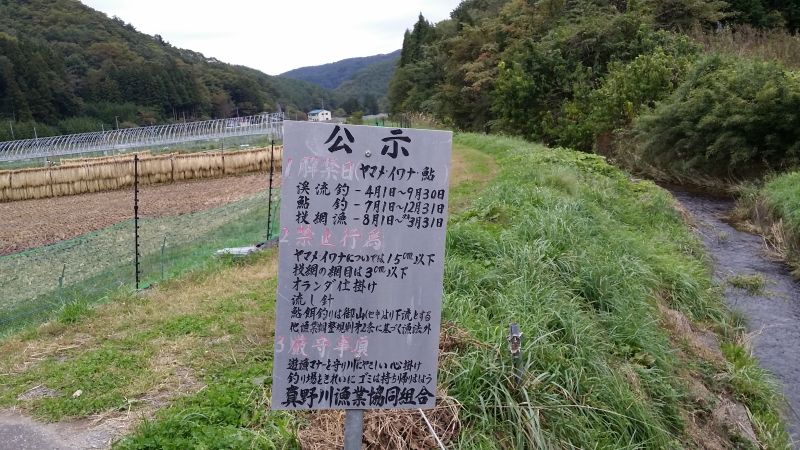 公示
1 解禁日(ヤマメ・イワナ・鮎)
渓流釣-4月1日~9月30日
鮎釣-7月1日~12月31日
投網漁-8月1日~3月31日
2 禁止行為
ヤマメ・イワナについては15cm以下
投網の網目は3cm以下
オランダ仕掛け
流し針
鮎餌釣りは御山(セキ)より下流とする
他漁業調整規則第2条に基づく漁法外
3 厳守事項
遊漁マナーを守り川にやさしい心掛け
釣り場をきれいにゴミは持ち帰りましょう
真野川漁業協同組合